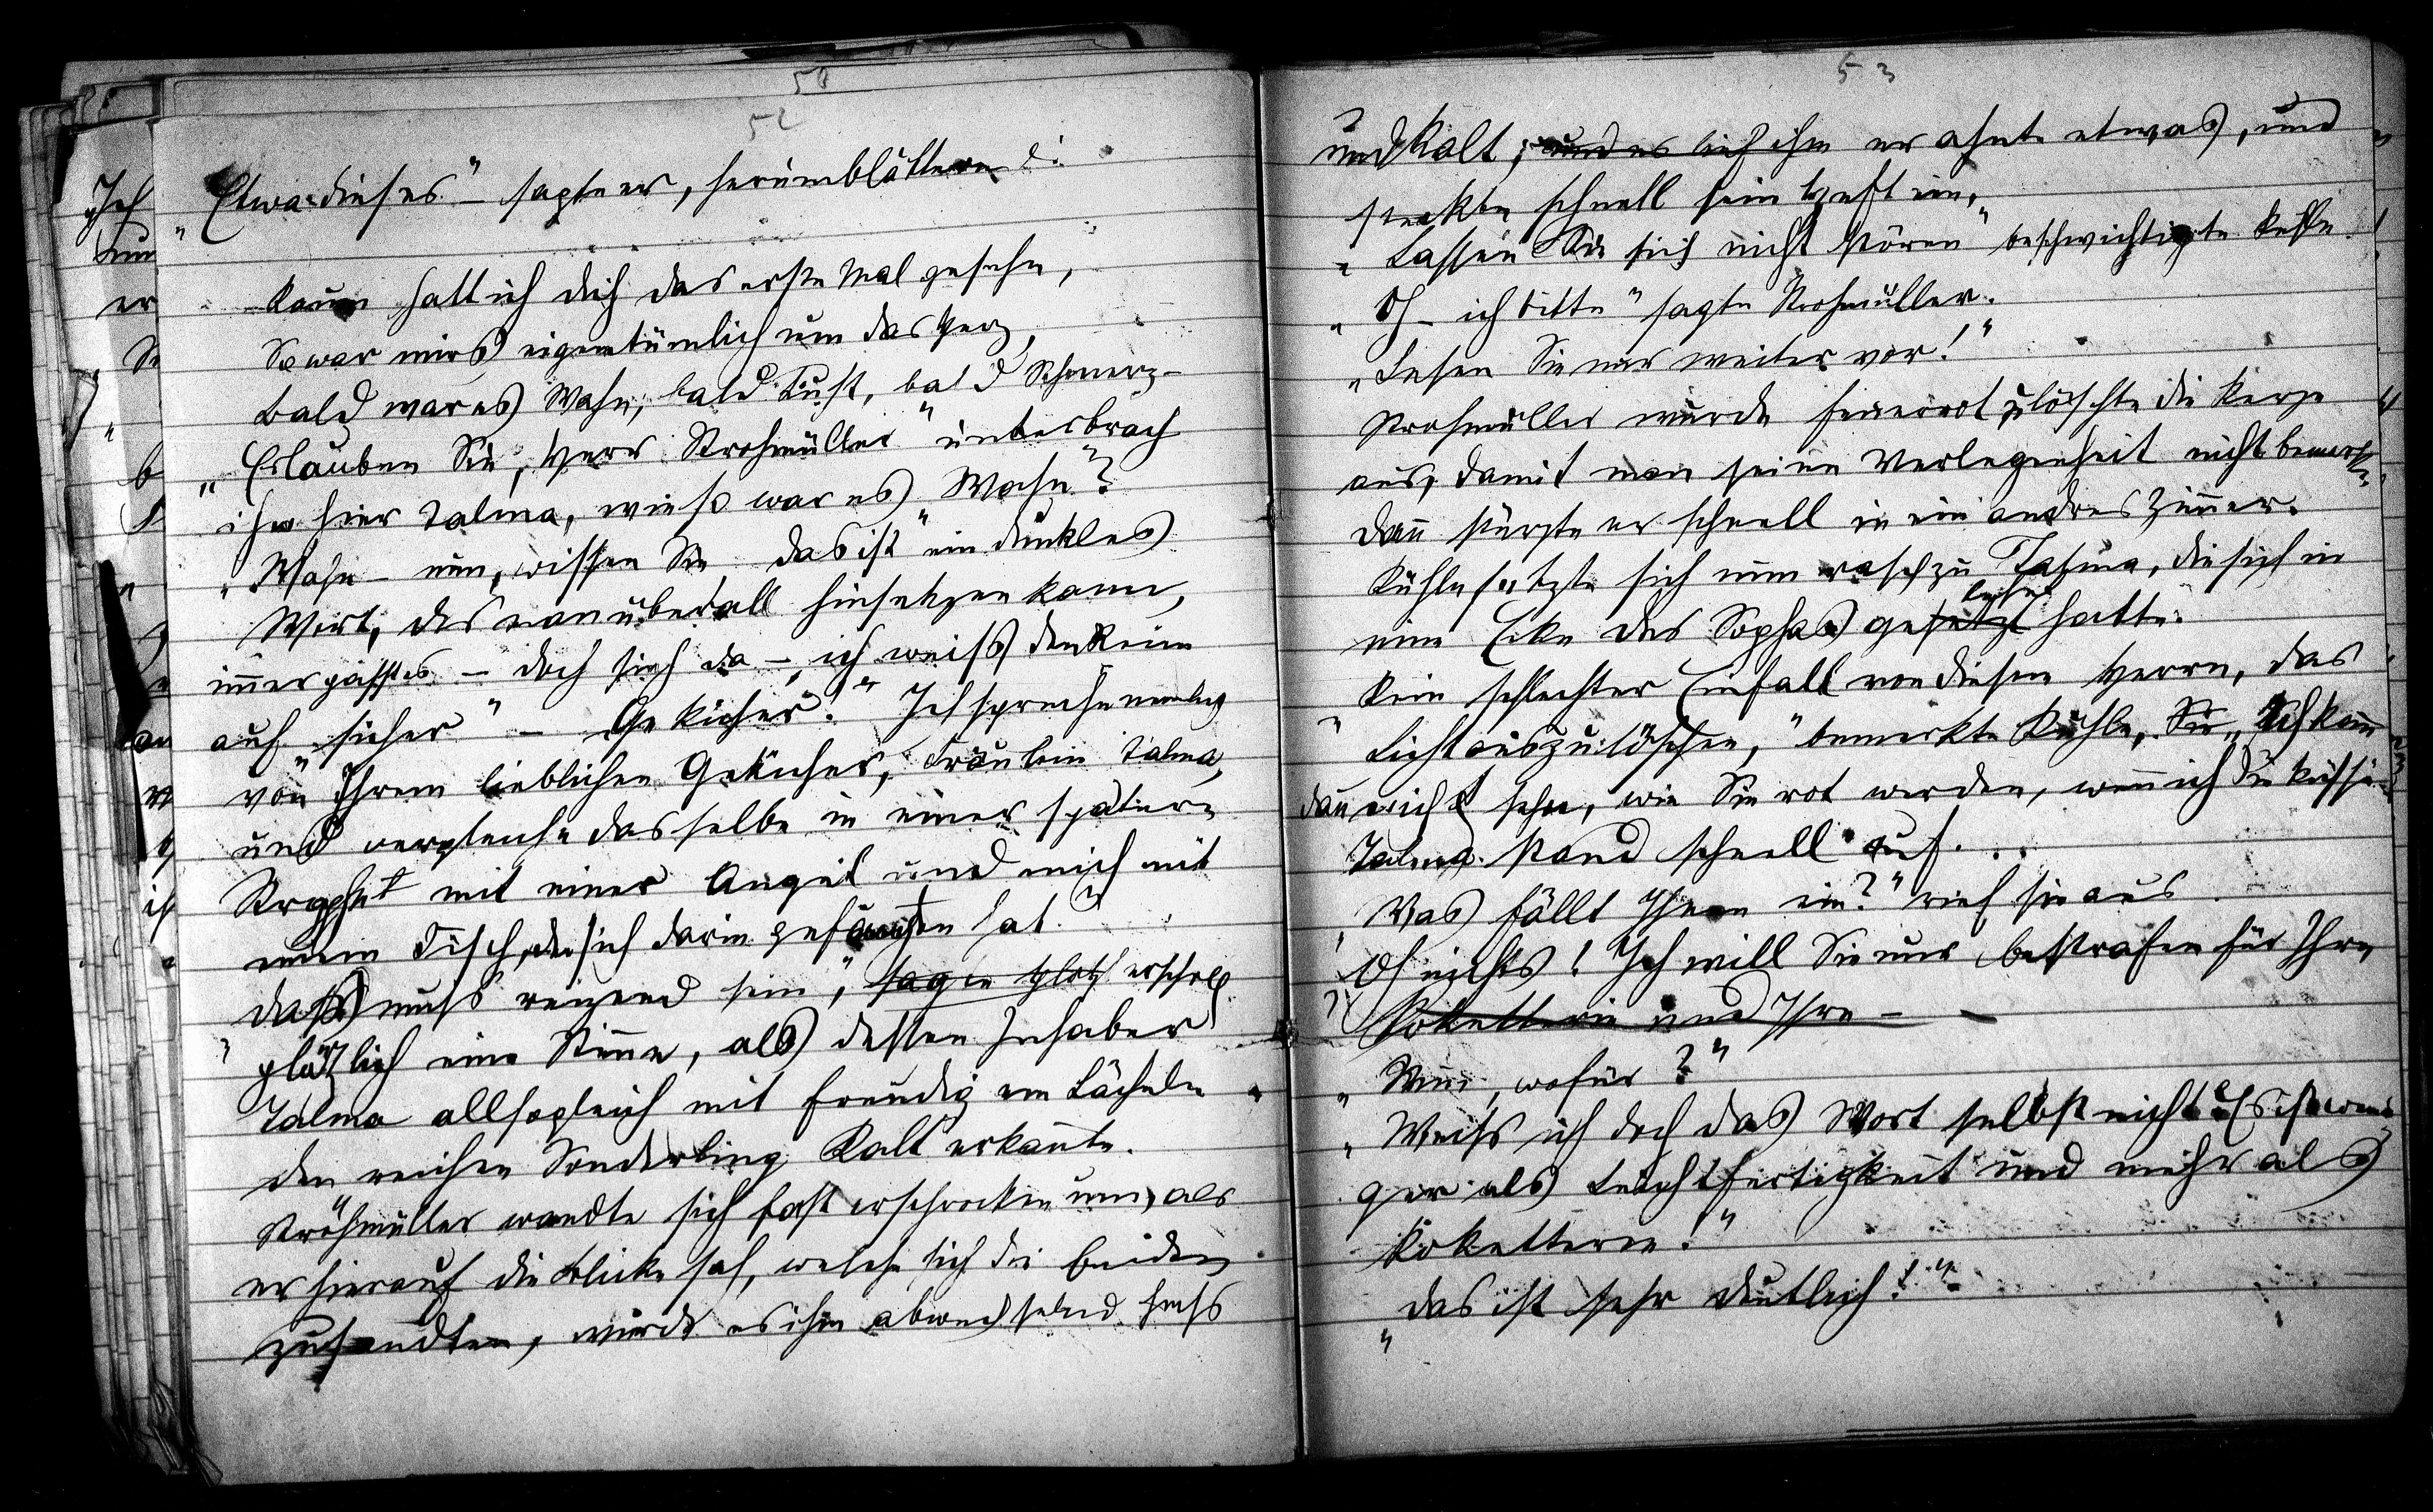 50
52
„Etwa dieses“ – sagte er, herumblätternd:
Kaum hatt ich dich das erste Mal gesehn,
So war mirs eigentümlich um das Herz,
Bald war es Wahn, bald Lust, bald Schmerz –
„Erlauben Sie, Herr Strohmüller“ unterbrach
ihn hier Talma, „wieso war es Wahn“?
„Wahn – nun, wissen Sie das ist ein dunkles
Wort, das man überall hinsetzen kann,
immer passt es – doch sieh da – ich weiss den Reim
auf „sicher“ – Gekicher!“ Ich spreche nemlich
von Ihrem lieblichen Gekicher, Fräulein Talma,
und vergleiche dasselbe in einer spätern
Strophe mit einer Angel und mich mit
einem Fisch, der sich darin gefangen hat.“
„Das muss reizend sein“, sagte plötz erscholl
plötzlich eine Stimme, als dessen Inhaber
Talma allsogleich mit freudigem Lächeln
den reichen Sonderling Kalt erkannte.
Strohmüller wandte sich fast erschrocken um, als
er hierauf die Blicke sah, welche sich die beiden
zusandten, wurde es ihm abwechselnd heiss
53
und kalt; und es lief ihm er ahnte etwas, und
steckte schnell sein Heft ein.
„Lassen Sie sich nicht stören“ beschwichtigte
„Oh – ich bitte“ sagte Strohmüller.
„Lesen Sie nur weiter vor!“
Strohmüller wurde feuerrot, löschte die Kerze
aus, damit man seine Verlegenheit nicht bemerke,
dann stürzte er schnell in ein andres Zimmer.
Kühle setzte sich nun rasch zu Talma, die sich in
eine Ecke des Sophas gesetzt hatte.
„Kein schlechter Einfall von diesem Herrn, das
Licht auszulöschen,“ bemerkte Kühle, „Ich kann
dann nicht sehn, wie Sie rot werden, wenn ich Sie küsse“
Talma stand schnell auf...
„Was fällt Ihnen ein?“ rief sie aus.
„Oh nichts! Ich will Sie nur bestrafen für Ihre
Koketterie und Ihre – –
„Nun, wofür?“
„Weiss ich doch das Wort selbst nicht! Es ist weni
ger als Leichtfertigkeit und mehr als
Koketterie!“
„Das ist sehr deutlich!“